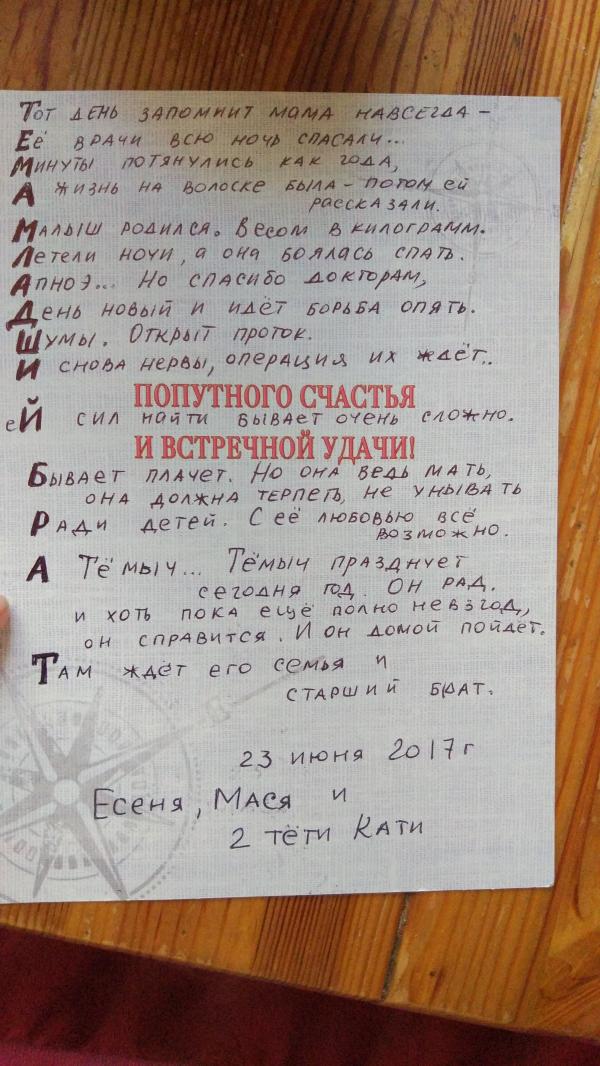 Тот день запомнит мама навсегда –
Её врачи всю ночь спасали...
Минуты потянулись как года,
А жизнь на волоске была – потом ей
рассказали.
Малыш родился. Весом в килограмм.
Летели ночи, а она боялась спать.
Апноэ... Но спасибо докторам,
День новый и идёт борьба опять.
Шумы. Открыт проток.
И снова нервы, операция их ждёт..
ПОПУТНОГО СЧАСТЬЯ
ей сил найти бывает очень сложно.
И ВСТРЕЧНОЙ УДАЧИ!
Бывает плачет. Но она ведь мать,
она должна терпеть, не унывать
Ради детей. С её любовью всё
возможно.
А Тёмыч... Тёмыч празднует
сегодня год. Он рад.
и хоть пока ещё полно невзгод,
он справится. И он домой пойдёт.
Там ждёт его семья и
старший брат.
23 июня 2017 г
Есеня, Мася и
2 тёти Кати